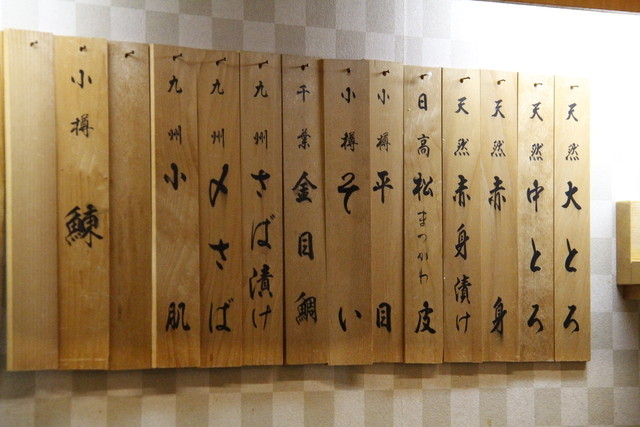 天然 大とろ
天然 中とろ
天然 赤身
天然 赤身漬け
日高 松皮 まつかわ
小樽 平目
小樽 そい
千葉 金目鯛
九州 さば漬け
九州 〆さば
九州 小肌
小樽 鰊